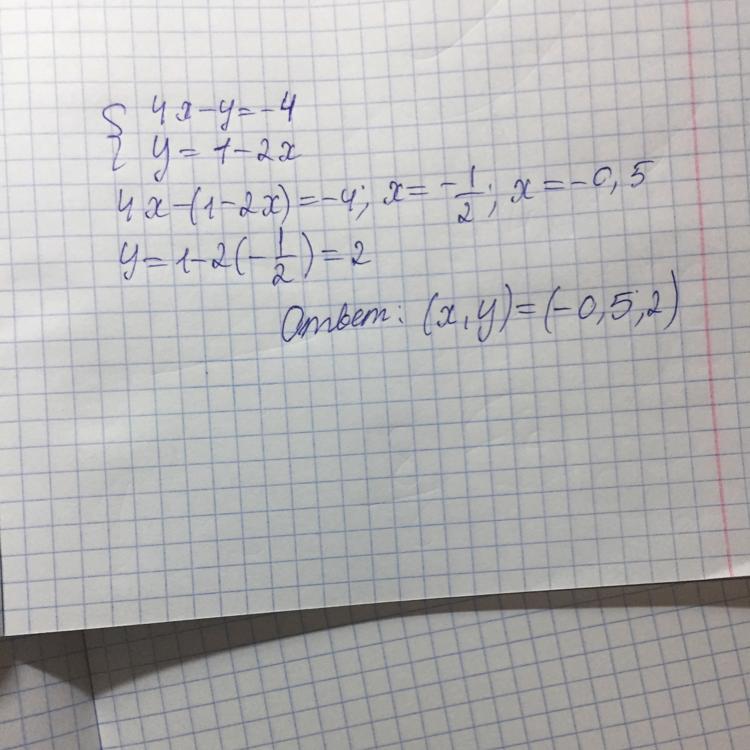 { 4x-y=-4
y = 1-2x
4x-(1-2x)=-4; x=-1/2; x=-0,5
y=1-2(-1/2)=2
Ответ: (x,y)=(-0,5;2)